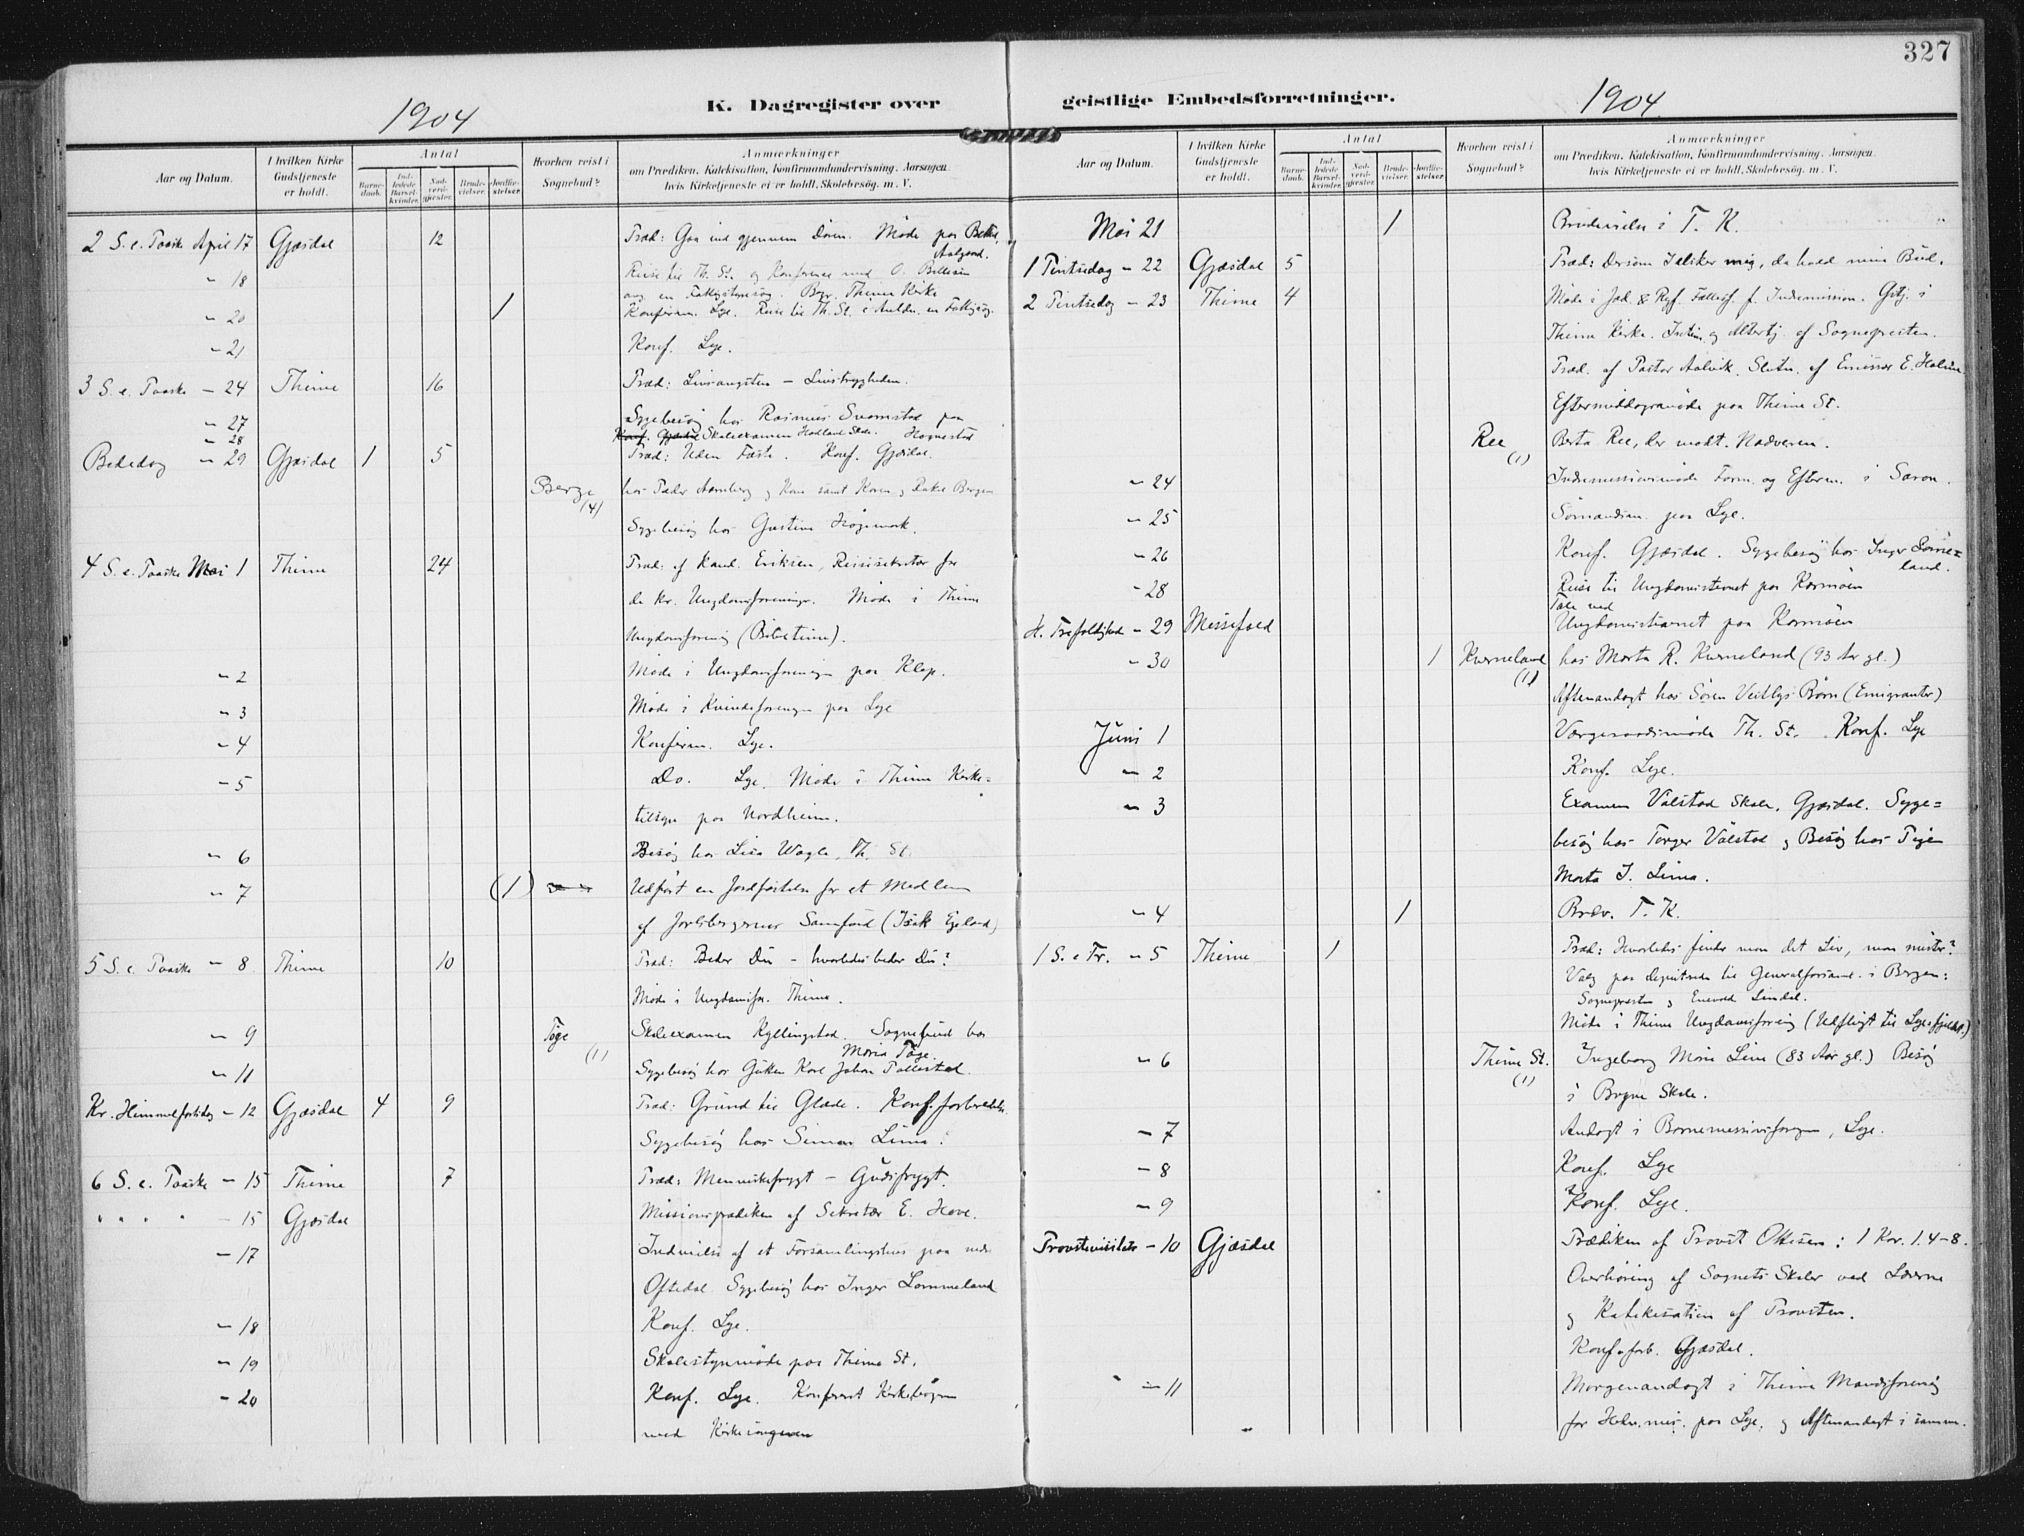 327
1904
K. Dagregister over
geistlige Embedsforretninger.
1904
Aar og Datum.
I hvilken Kirke Gudstjeneste er holdt.
Antal
Barnedaab.
Indledede Barselkvinder.
Nadverdgjæster.
Brudevielser.
Jordfæstelser.
Hvorhen reist i Sognebud?
Anmærkninger
om Prædiken, Katekisation, Konfirmandundervisning, Aarsagen
hvis Kirketjeneste ei er holdt, Skolebesøg, m. V.
2 S. e. Paaske April 17 Gjæsdal 12 Præd: Gaa ind gjennem Døren. Møde paa
Aalgaard.
" 18 Reise til Th. St. og Konferance med O.
en Thime Kirke
" 20 1 Konfirm. Lye. Reise til Th. St.
" 21 Konf. Lye.
3 S. e. Paaske " 24 Thime 16 Præd: Livsangsten – Livstrygheden.
" 27 Sygebesøg hos Rasmus paa
" 28 Skoleexamen Hadland Skole. Hognestad
Bededag " 29 Gjæsdal 1 5 Præd: Uden Konf. Gjæsdal.
Berge (4) hos Peder og Kone samt Karen og
Sygebesøg hos Gustine
4 S. e. Paaske Mai 1 Thime 24 Præd: af Kand. Eriksen, Reisesekretær for
de kr. Ungdomsforeninger. Møde i Thime
Ungdomsforening (Bibeltime).
" 2 Møde i Ungdomsforeningen paa Klep.
" 3 Møde i Kvindeforeningen paa Lye
" 4 Konfirm. Lye.
" 5 Do. Lye. Møde i Thime Kirke=
tilsyn paa Nordheim.
" 6 Besøg hos Lisa Wagle, Th. St.
" 7 (1) Udført en Jordfæstelse for et Medlem
af Samfund (Isak Egeland)
5 S. e. Paaske " 8 Thime 10 Præd: Beder Du – hvorledes beder Du?
Møde i Ungdomsfor. Thime.
" 9 Tøge (1) Skoleexamen Kyllingstad. Sognebud hos
Maria Tøge.
" 11 Sygebesøg hos Gutten Karl Johan
Kr. Himmelfartsdag " 12 Gjæsdal 4 9 Præd: Grund til Glæde. Konf. forberedelse
Sygebesøg hos Simon Lima.
6 S. e. Paaske " 15 Thime 7 Præd: Menneskefrygt – Gudsfrygt.
" " " " " 15 Gjæsdal Missionsprædiken af Sekretær E. Hove.
" 17 Indvielse af et Forsamlingshus paa nedr
Oftedal. Sygebesøg hos Inger Lommeland
" 18 Konf. Lye.
" 19 Skolestyrmøde paa Thime St.
" 20 Konf. Lye. Konfereret Kirkebøgerne
med Kirkesangeren
Aar og Datum.
I hvilken Kirke Gudstjeneste er holdt.
Antal
Barnedaab.
Indledede Barselkvinder.
Nadverdgjæster.
Brudevielser.
Jordfæstelser.
Hvorhen reist i Sognebud?
Anmærkninger
om Prædiken, Katekisation, Konfirmandundervisning, Aarsagen
hvis Kirketjeneste ei er holdt, Skolebesøg, m. V.
Mai 21 1 Brudevielse i T. K.
1 Pintsedag " 22 Gjæsdal 5 Præd: Dersom I elsker mig, da hold mine Bud.
2 Pintsedag " 23 Thime 4 Møde i Jæd. & Ryf. Fællesf. f. Indremission. Gstj. i
Thime Kirke. og Altertj. af Sognepresten.
Præd. af Pastor Aalvik. af Emissær E. Holm
Eftermiddagsmøde paa Thime St.
Ree (1) Berta Ree, der modt. Nadveren.
" 24 Indremissionsmøde Form. og Efterm. i Saron.
" 25 paa Lye.
" 26 Konf. Gjæsdal. Sygebesøg hos Inger Lomme=
land.
" 28 Reise til Ungdomsstevnet paa Karmøen
Tale ved
H. Trefoldighed " 29 Messefald Ungdomsstævnet paa Karmøen
" 30 1 Kverneland (1) hos Marta R. Kverneland (93 Aar gl.)
Aftenandagt hos Søren Børn (Emigranter)
Juni 1 Værgeraadsmøde Th. St. Konf. Lye
" 2 Konf. Lye.
" 3 Examen Vølstad Skole. Gjæsdal. Syge=
besøg hos Torger Vølstad og Besøg hos Pigen
Marta J. Lima.
" 4 1 Brdv. T. K.
1 S. e Tr. " 5 Thime 1 Præd: Hvorledes finder man det Liv, man mister?
Valg paa deputerede til Generalforsaml. i Bergen:
Sognepræsten og Enevald Lindal.
Møde i Thime Ungdomsforening (Udflugt til Lyefjeldet)
" 6 Thime St. (1) Ingeborg Marie Lima (83 Aar gl.) Besøg
i Bryne Skole.
" 7 Andagt i Børnemissionsforeningen, Lye.
" 8 Konf. Lye
" 9 Konf. Lye.
Provstevisitats " 10 Gjæsdal Prædiken af Provst Ottesen: 1 Kor. 1. 4–8.
Overhøring af Sognets Skoler ved Lærerne
og Katekisation af Provsten.
Konf. forb. Gjæsdal.
" 11 Morgenandagt i Thime Mandsforening
for Hedn. mis. paa Lye. og Aftenandagt i samme.